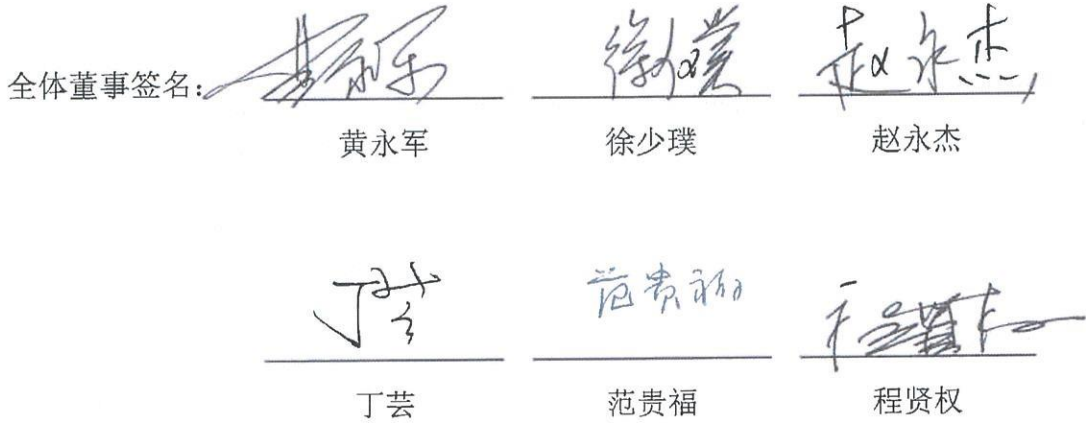 全体董事签名: 黄永军 徐少璞 赵永杰
黄永军 徐少璞 赵永杰
丁芸 范贵福 程贤权
丁芸 范贵福 程贤权